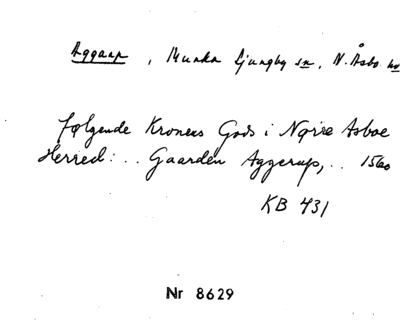 Aggarp, Munka Ljungby sn, N. Åsbo hd
følgende Kronens Gods i Nørre Asboe
Herred: .. Gaarden Aggerup, .. 1560
KB 431
Nr 8629